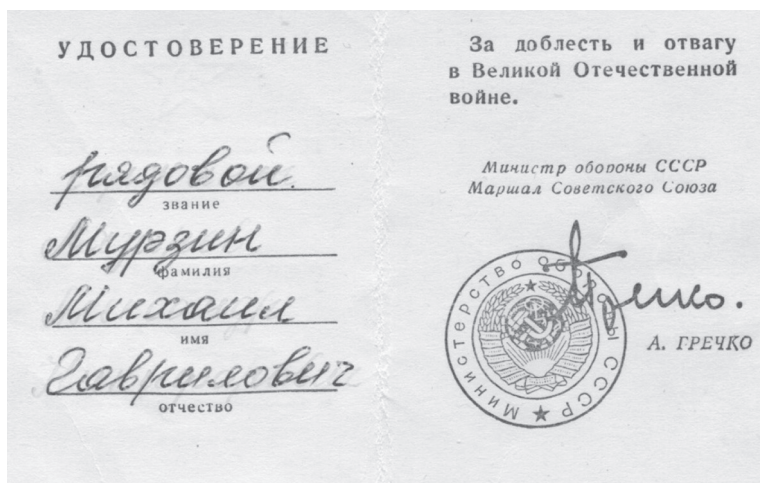 УДОСТОВЕРЕНИЕ
рядовой
звание
Мурзин
фамилия
Михаил
имя
Гаврилович
отчество
За доблесть и отвагу
в Великой Отечественной
войне.
Министр обороны СССР
Маршал Советского Союза
МИНИСТЕРСТВО ОБОРОНЫ СССР
Гречко.
А. ГРЕЧКО